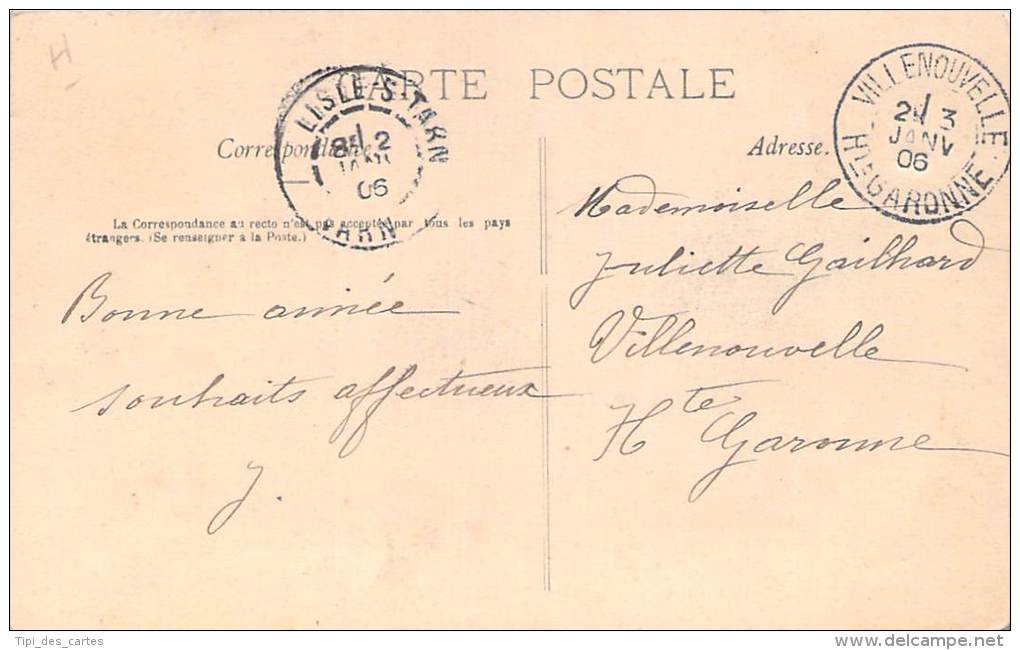 H
CARTE POSTALE
LISLE-S-TARN
8E 2
JANV
06
TARN
VILLENOUVELLE
2E 3
JANV
06
HTE GARONNE
Correspondance.
Adresse.
La Correspondance au recto n'est pas acceptée par tous les pays
étrangers. (Se renseigner à la Poste.)
Bonne année
souhaits affectueux
J.
Mademoiselle
Juliette Gailhard
Villenouvelle
Hte Garonne
Tipi_des_cartes
delcampe.net